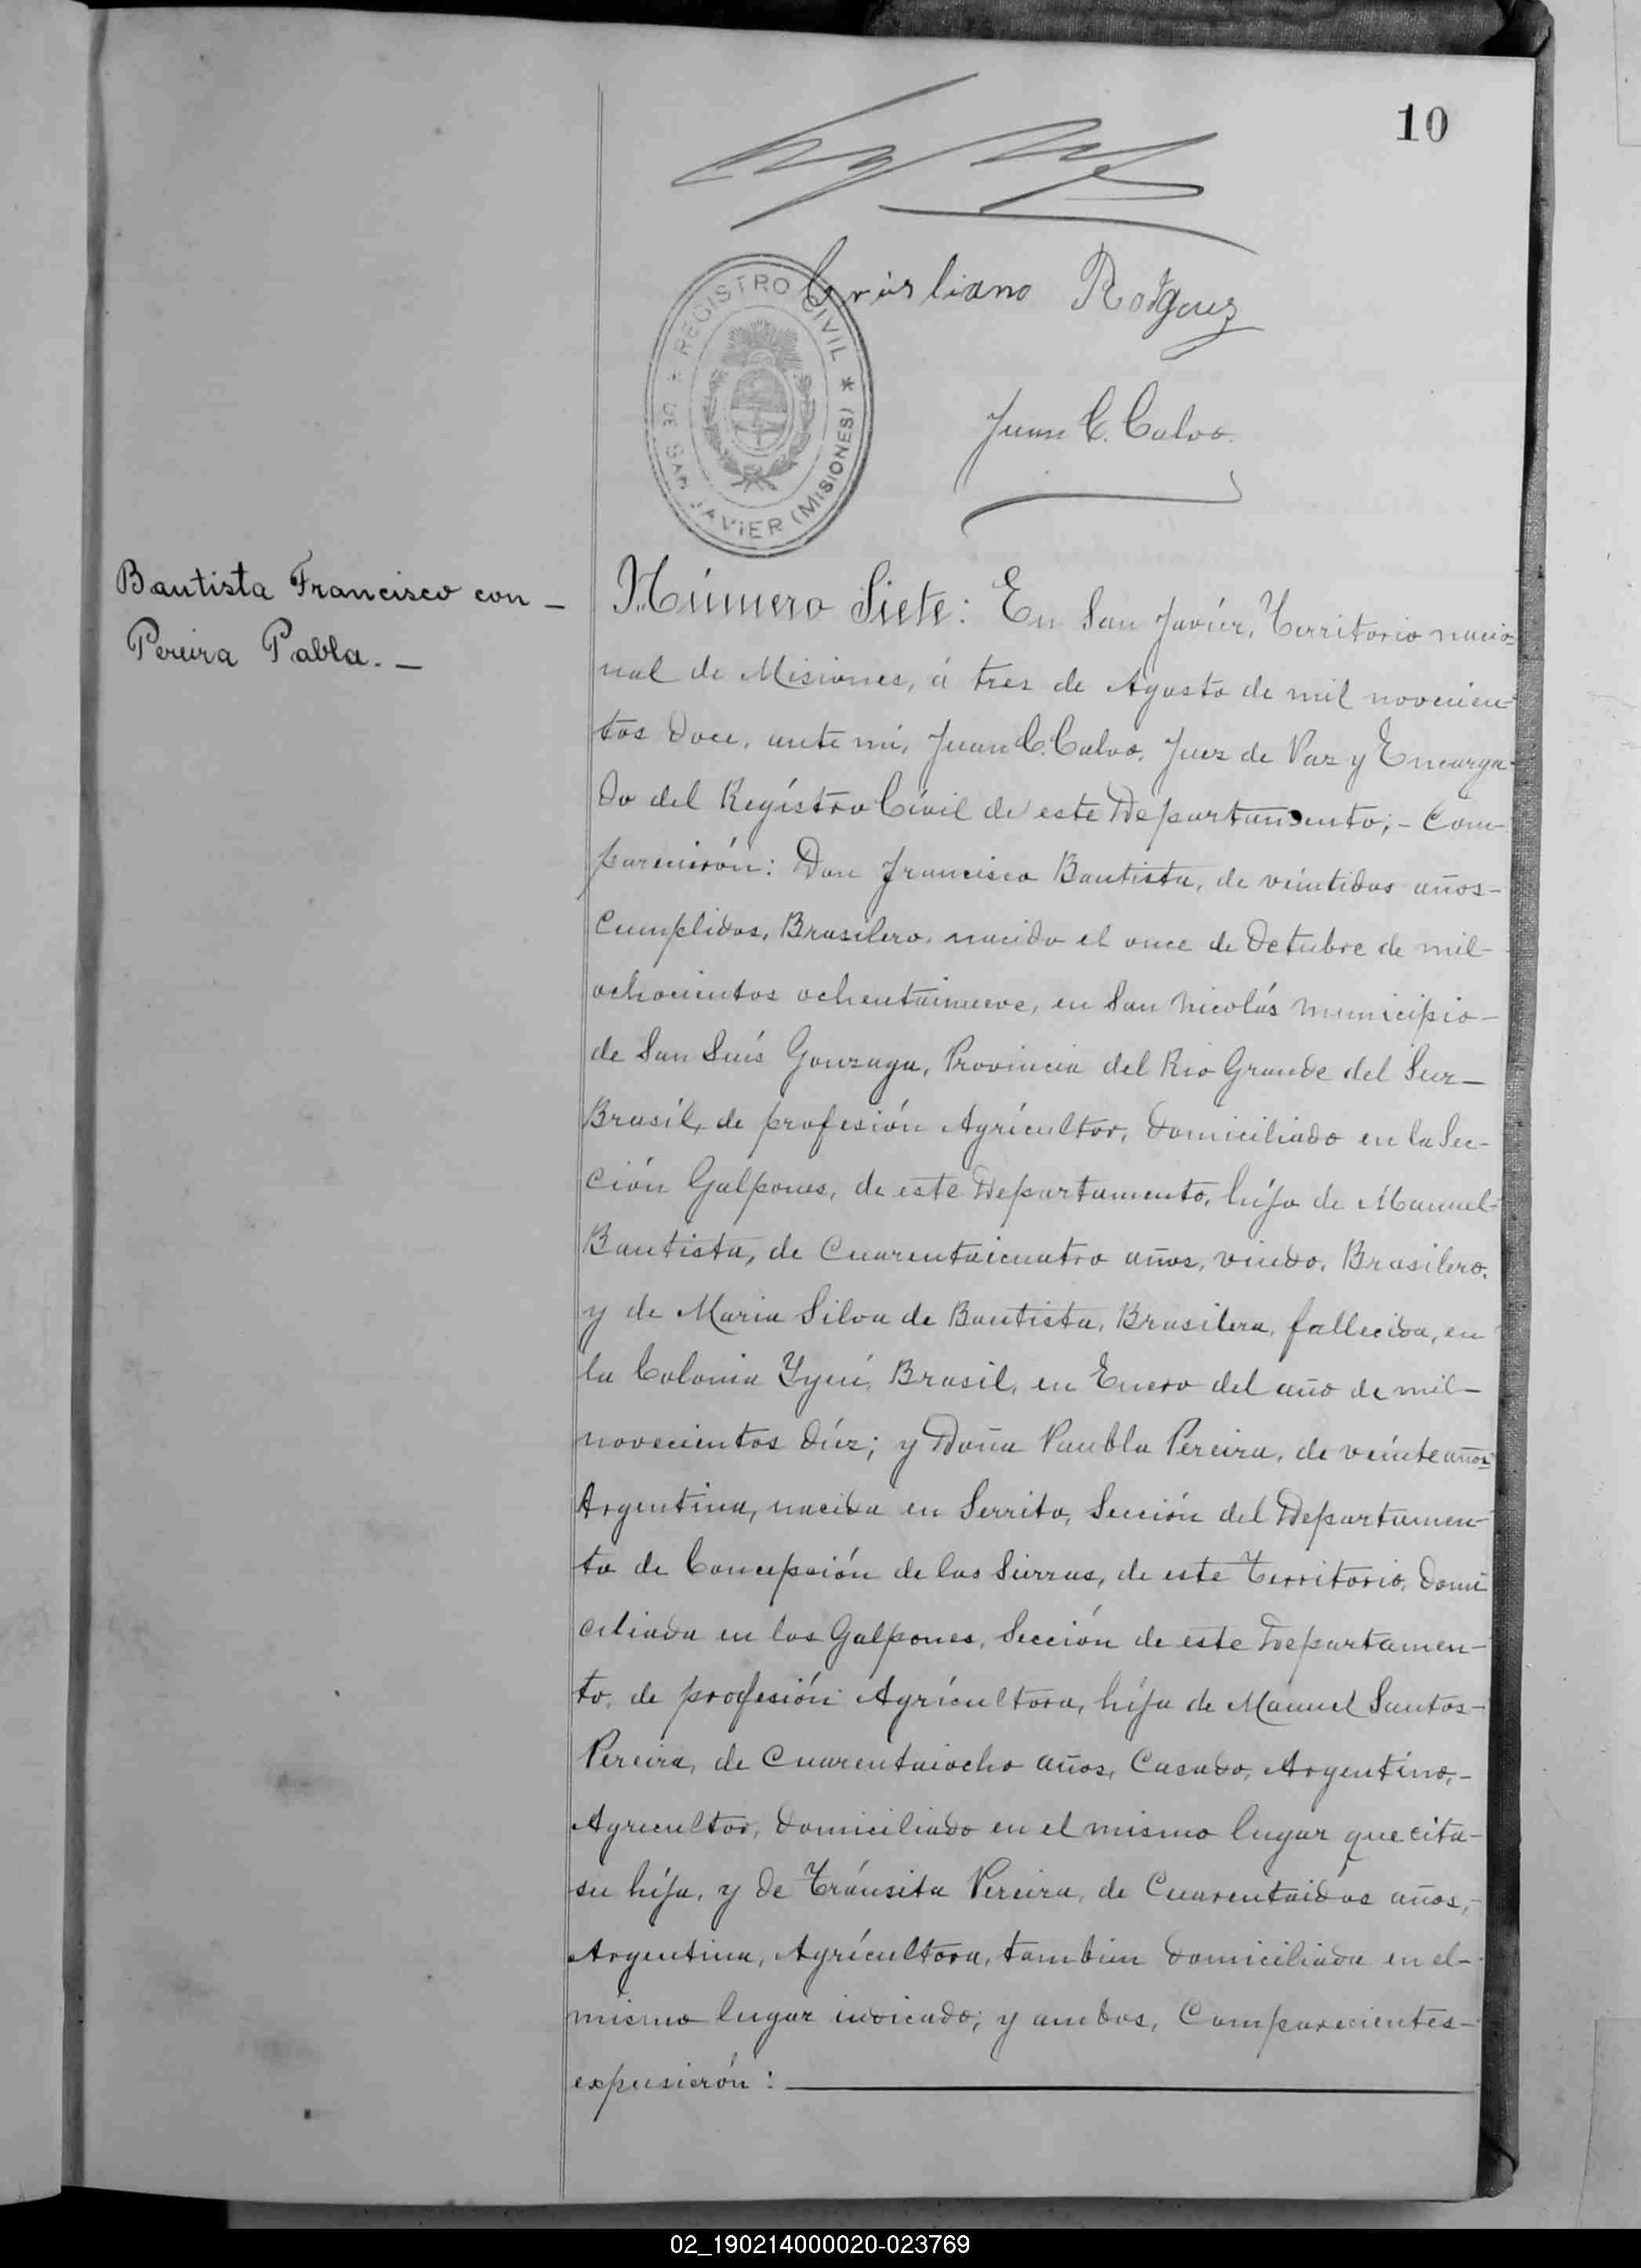 10
Juan C. Calvo.
REGISTRO CIVIL * DE SAN JAVIER (MISIONES) *
Bautista Francisco con _
Pereira Pabla. _
Número Siete: En San Javiér, Territorio nacio=
nal de Misiones, á tres de Agosto de mil novecien-
tos doce, ante mí, Juan C. Calvo, Juez de Paz y Encarga-
do del Regístro Cívil de este Departamento; - Com-
parecirón: Don Francisco Bautista, de véintidos años-
Cumplidos, Brasilero, nacido el once de Octubre de mil-
ochocientos ochentainueve, en San Nicolás municipio-
de San Luís Gonzaga, Provincia del Rio Grande del Sur-
Brasíl, de profesión Agrícultor, domiciliado en la Sec-
ción Galpones, de este Departamento, híjo de Manuel-
Bautista, de Cuarentaicuatro años, viudo, Brasilero,
y de Maria Silva de Bautista, Brasilera, fallecida, en
la Colonia Yyuí, Brasil, en Enero del año de mil-
novecientos díez; y Doña Paubla Pereira, de veínte años=
Argentina, nacida en Serrito, Sección del Departamen-
to de Concepción de las Sierras, de este Territorio, domi
ciliada en los Galpones, Sección de este Departamen-
to, de profesión Agrícultora, híja de Manuel Santos-
Pereira, de Cuarentaiocho años, Casado, Argentíno,-
Agricultor, domiciliado en el mismo lugar que cita-
su híja, y de Tránsita Pereira, de Cuarentaidos años,-
Argentina, Agrícultora, tambien domiciliada en el-
mismo lugar indicado; y ambos, Comparecientes-
expusierón:
02_190214000020-023769